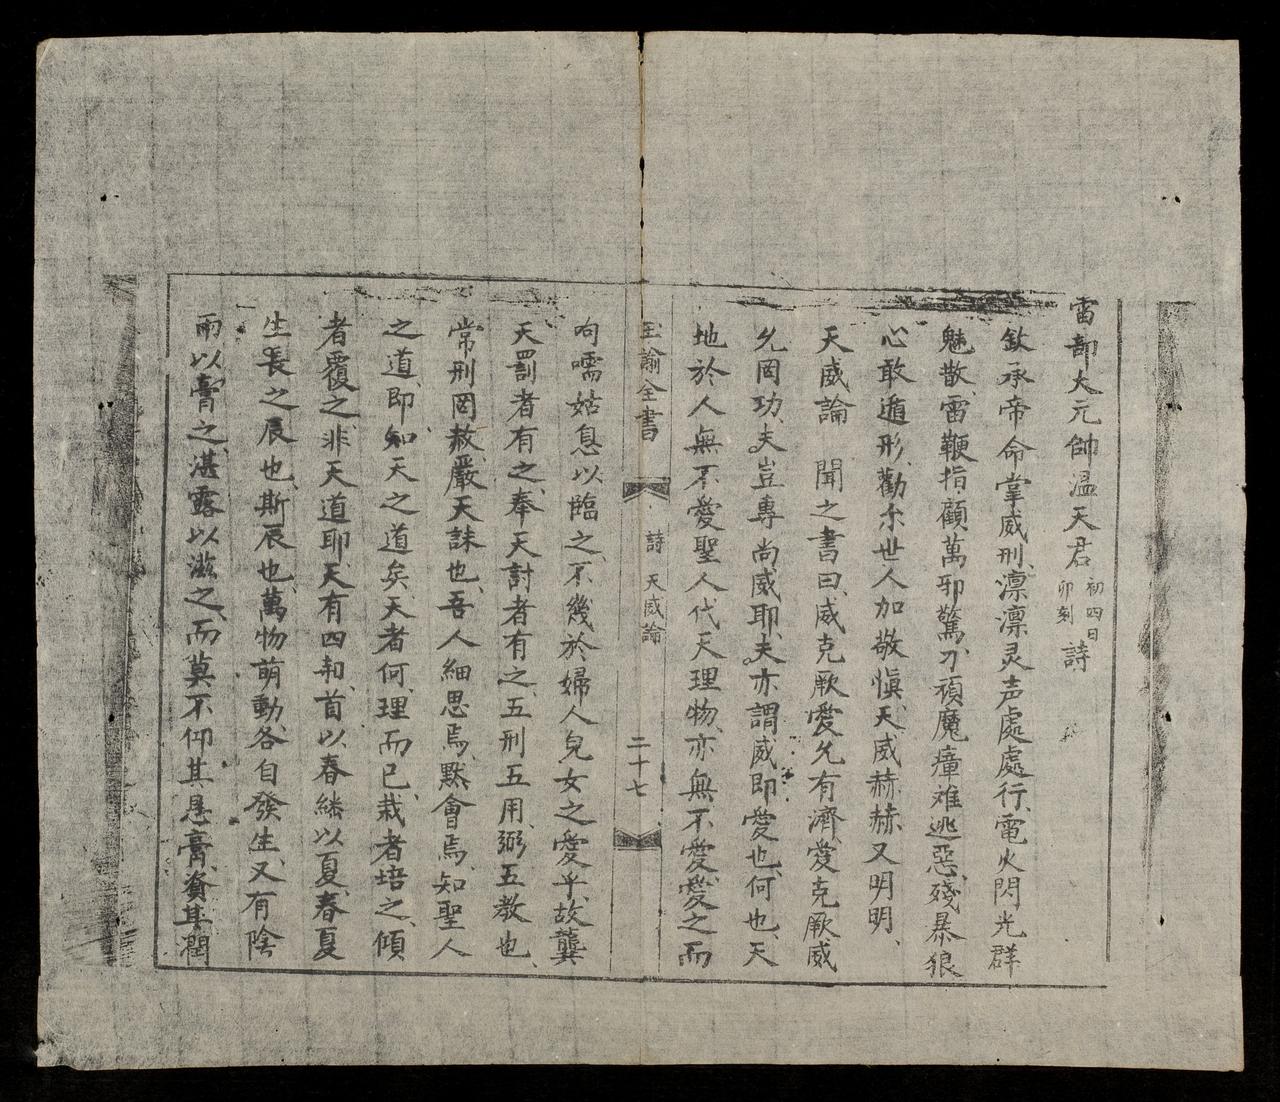 雷部大元帥溫天君初四日卯刻詩
欽承帝命掌威刑、凛凛灵声處處行、電火閃光群
魅散、雷鞭指顧萬邪驚、刀頑魔瘴难逃惡、殘暴狼
心敢遁形、勸尔世人加敬愼、天威赫赫又明明、
天威論　聞之書曰、威克厥愛允有濟、愛克厥威
允罔功、夫豈專尚威耶、夫亦謂威即愛也、何也、天
地於人無不愛聖人代天理物、亦無不愛、愛之而
玉諭全書　詩　天威論　二十七
呴嚅姑息以臨之、不幾於婦人兒女之愛乎、故龔
天罰者有之、奉天討者有之、五刑五用、弼五教也、
常刑罔赦、嚴天誅也、吾人細思焉、默會焉、知聖人
之道、即知天之道矣、天者何、理而已、栽者培之、傾
者覆之、非天道耶、天有四時、首以春、繼以夏、春夏
生長之辰也、斯辰也、萬物萌動、各自發生、又有陰
雨以膏之、湛露以滋之、而莫不仰其恩膏、資其潤